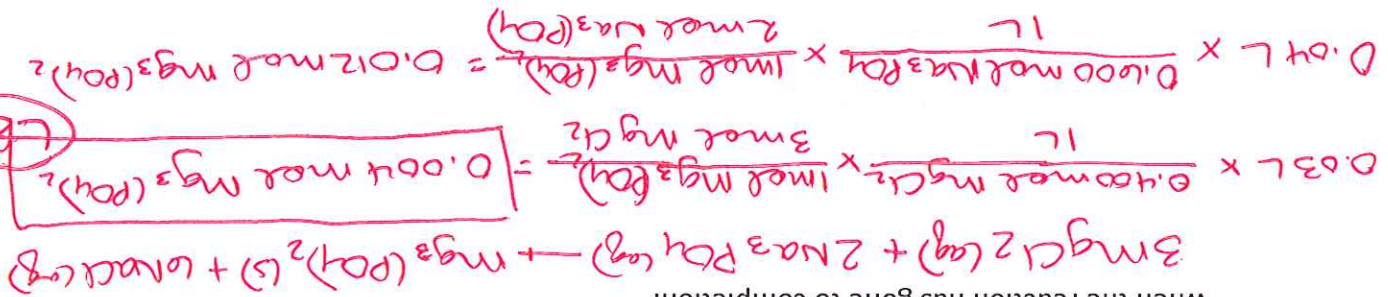 when the reaction has gone to completion.
3MgCl2 (aq) + 2Na3PO4 (aq) → Mg3(PO4)2 (s) + 6NaCl (aq)
0.03 L x 0.400 mol MgCl2 / 1L x 1 mol Mg3(PO4)2 / 3 mol MgCl2 = 0.004 mol Mg3(PO4)2
0.04 L x 0.600 mol Na3PO4 / 1L x 1 mol Mg3(PO4)2 / 2 mol Na3(PO4) = 0.012 mol Mg3(PO4)2